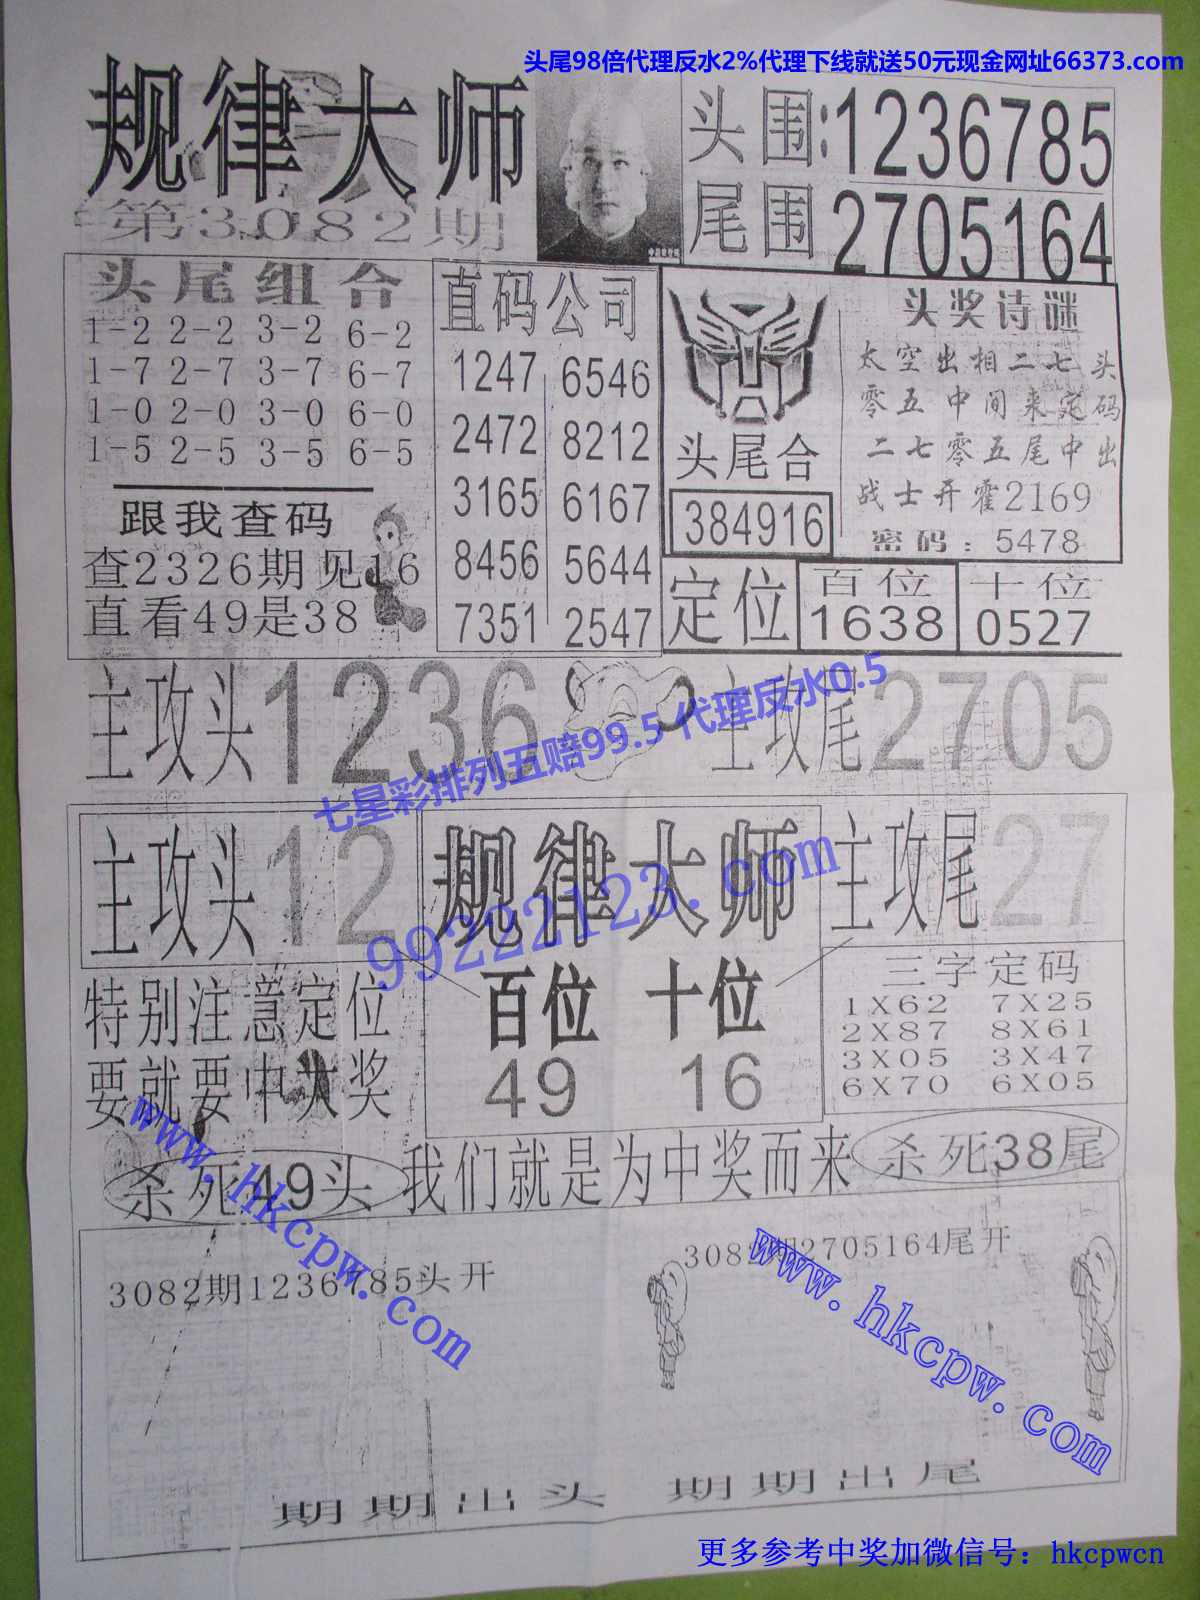 头尾98倍代理反水2%代理下线就送50元现金网址66373.com
规律大师
第3082期
头围:1236785
尾围 2705164
头尾组合
1-2 2-2 3-2 6-2
1-7 2-7 3-7 6-7
1-0 2-0 3-0 6-0
1-5 2-5 3-5 6-5
跟我查码
查2326期见16
直看49是38
直码公司
1247 6546
2472 8212
3165 6167
8456 5644
7351 2547
头尾合
384916
头奖诗谜
太空出相二七头
零五中间来定码
二七零五尾中出
战士开霍2169
密码：5478
定位
百位
1638
十位
0527
主攻头1236
主攻尾2705
七星彩排列五赔99.5 代理反水0.5
主攻头12
规律大师
主攻尾27
99222123.com
特别注意定位
要就要中大奖
百位 十位
49 16
三字定码
1X62 7X25
2X87 8X61
3X05 3X47
6X70 6X05
杀死49头
我们就是为中奖而来
杀死38尾
www.hkcpw.com
3082期1236785头开
3082期2705164尾开
www.hkcpw.com
期期出头
期期出尾
更多参考中奖加微信号：hkcpwcn